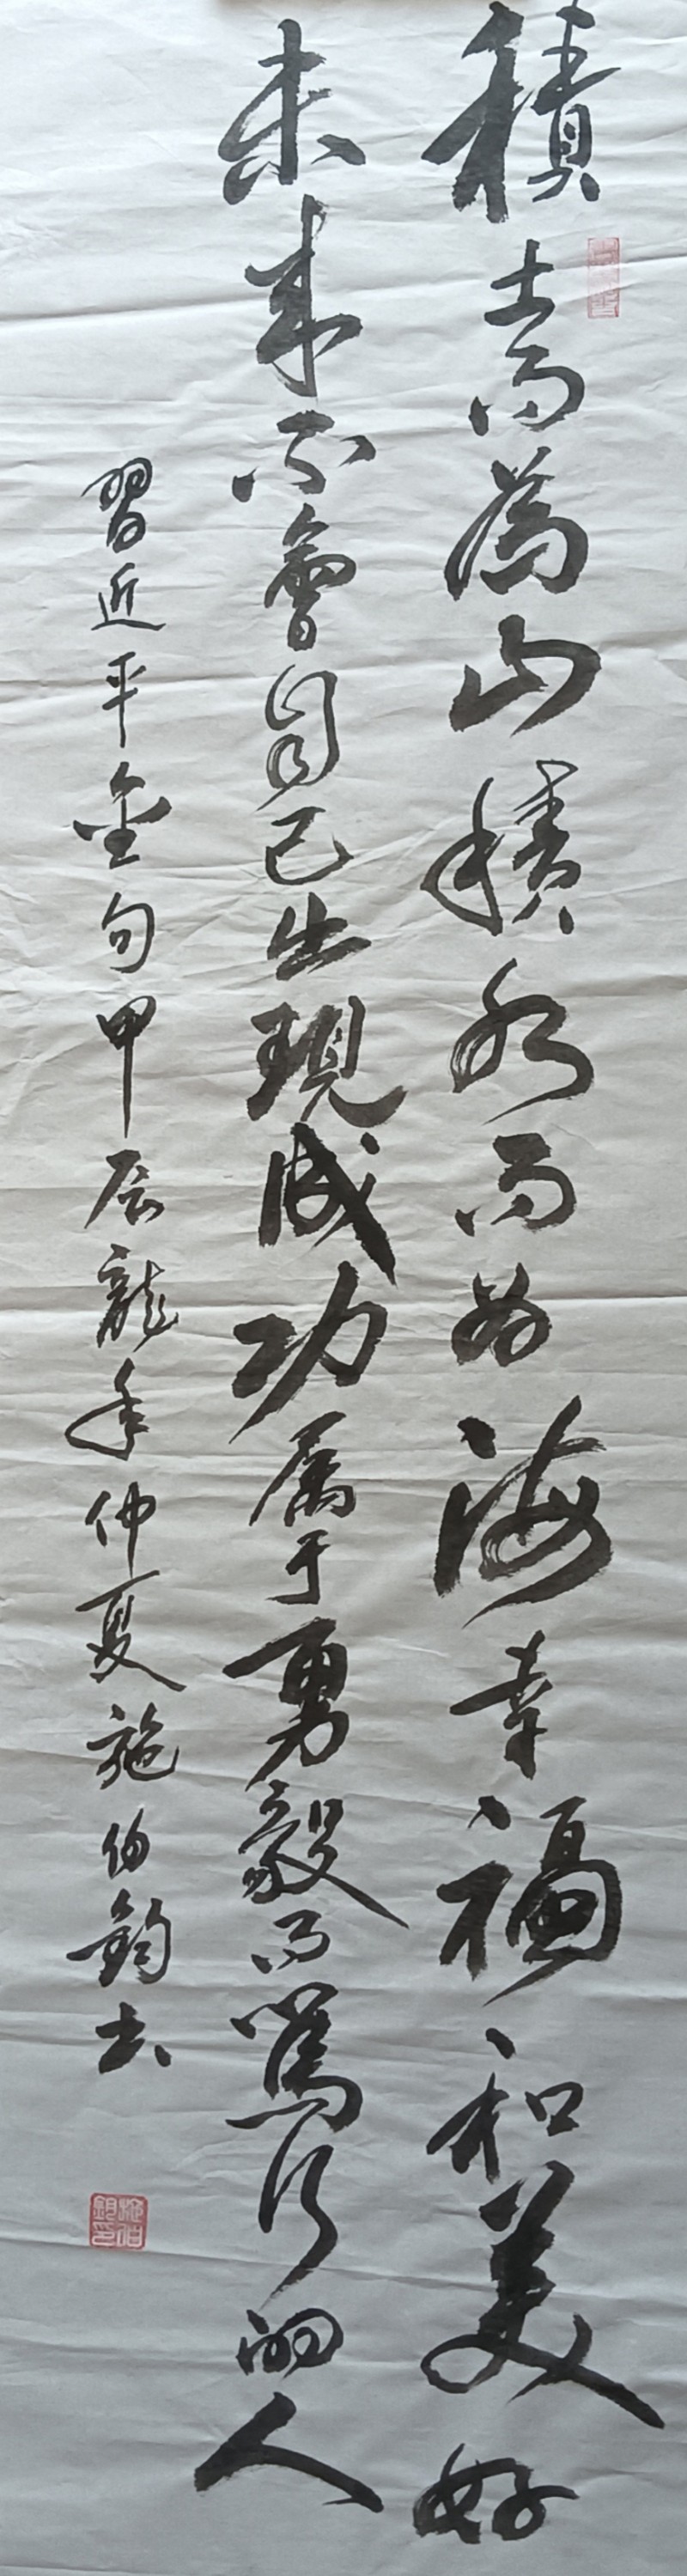 積土而為山積水而为海幸福和美好
未来不會自己出現成功属于勇毅而篤行的人
習近平金句甲辰龍年仲夏施伯鈞书
施伯鈞印